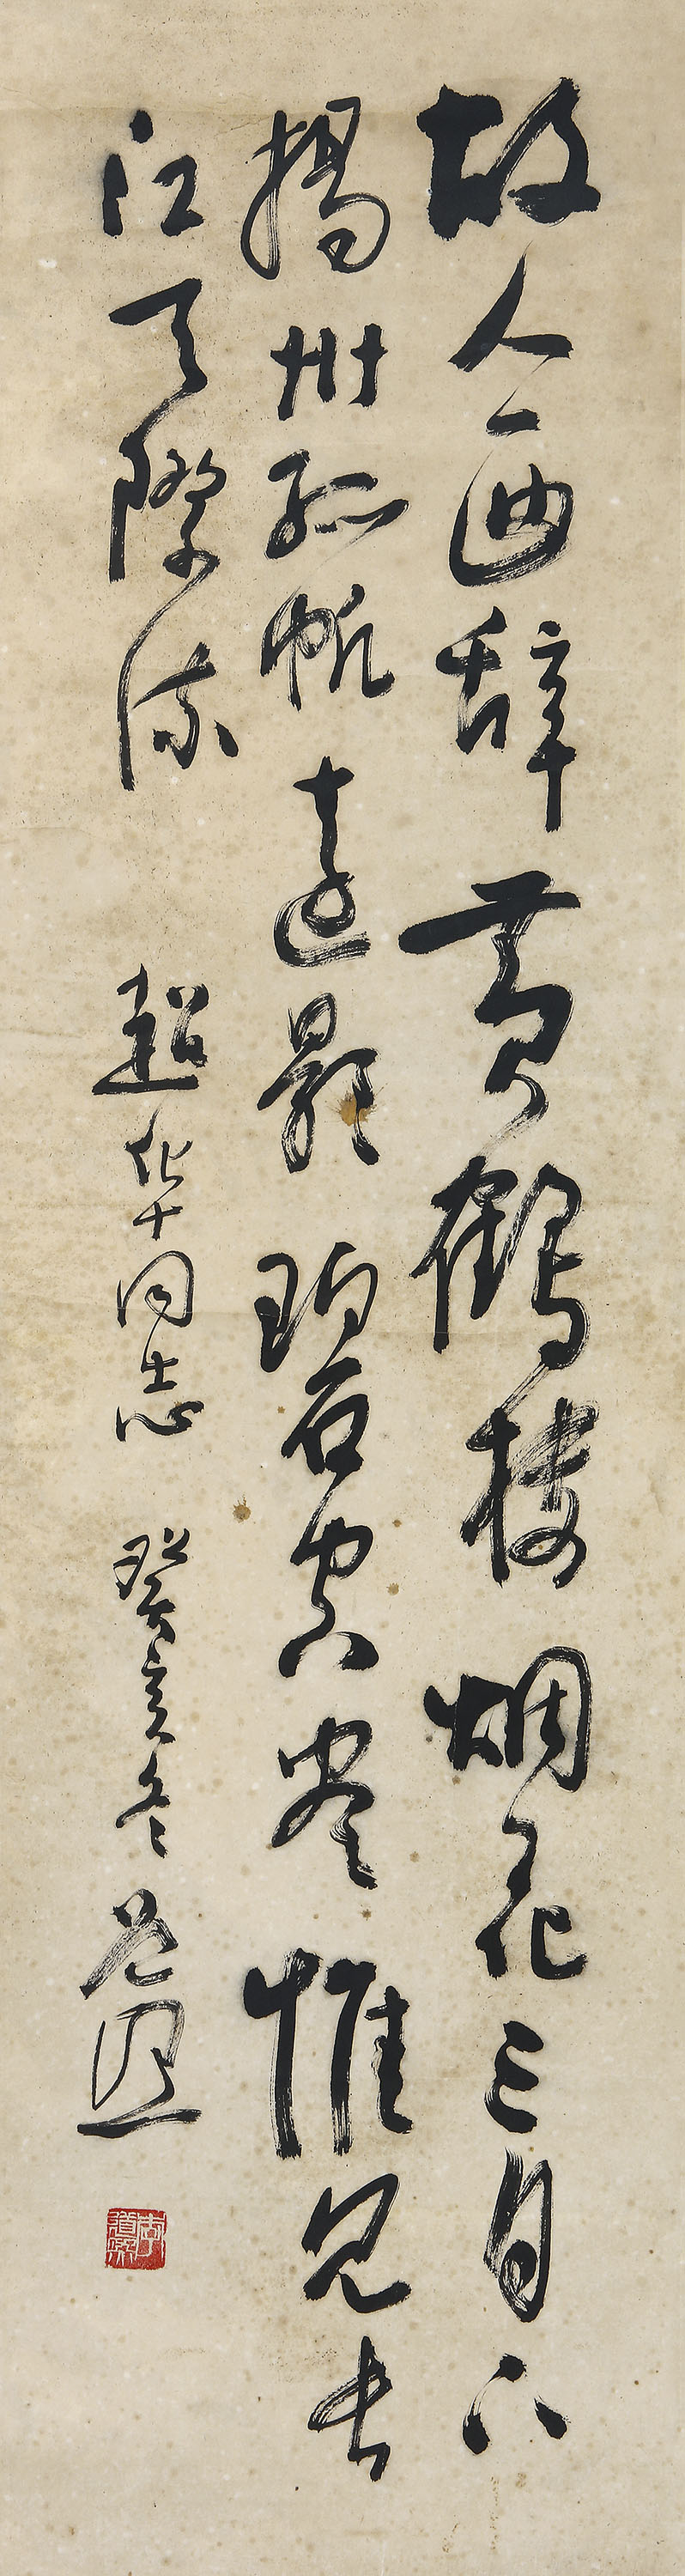 故人西辞黄鹤楼烟花三月下
揚州孤帆远影碧空尽惟见长
江天際流 超华同志 癸亥冬 道熙